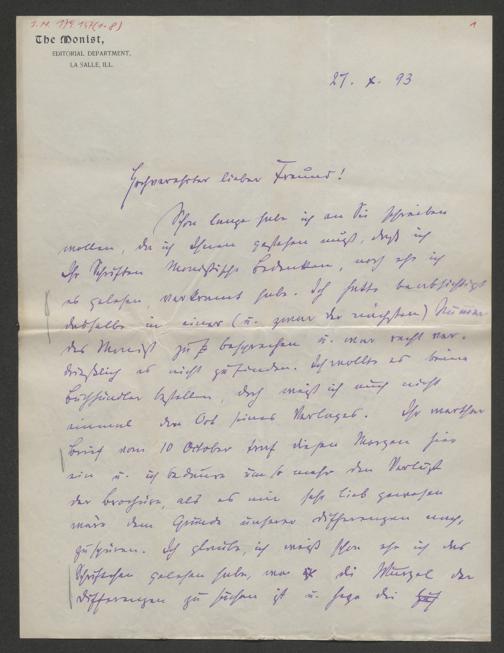 The Monist,
EDITORIAL DEPARTMENT,
LA SALLE, ILL.
1
27. X. 93
Hochverehrter lieber Freund!
Schon lange habe ich an Sie schreiben
wollen, da ich Ihnen gestehen muß, daß ich
Ihr Schriften Monistische Bedenken, noch ehe ich
es gelesen, verkramt habe. Ich hatte beabsichtigt
dasselbe in einer (u. zwar der nächsten) Nummer
des Monist zu besprechen u. war recht ver-
drießlich es nicht zu finden. Ich wollte es beim
Buchhändler bestellen, doch weiß ich auch nicht
einmal den Ort seines Verlages. Ihr werther
Brief vom 10 October traf diesen Morgen hier
ein u. ich bedaure um so mehr den Verlust
der Brochüre, als es mir sehr lieb gewesen
wäre dem Grunde unserer Differenzen nach-
zuspüren. Ich glaube, ich weiß schon ehe ich das
Schriftchen gelesen habe, wo die Wurzel der
Differenzen zu suchen ist u. sage die